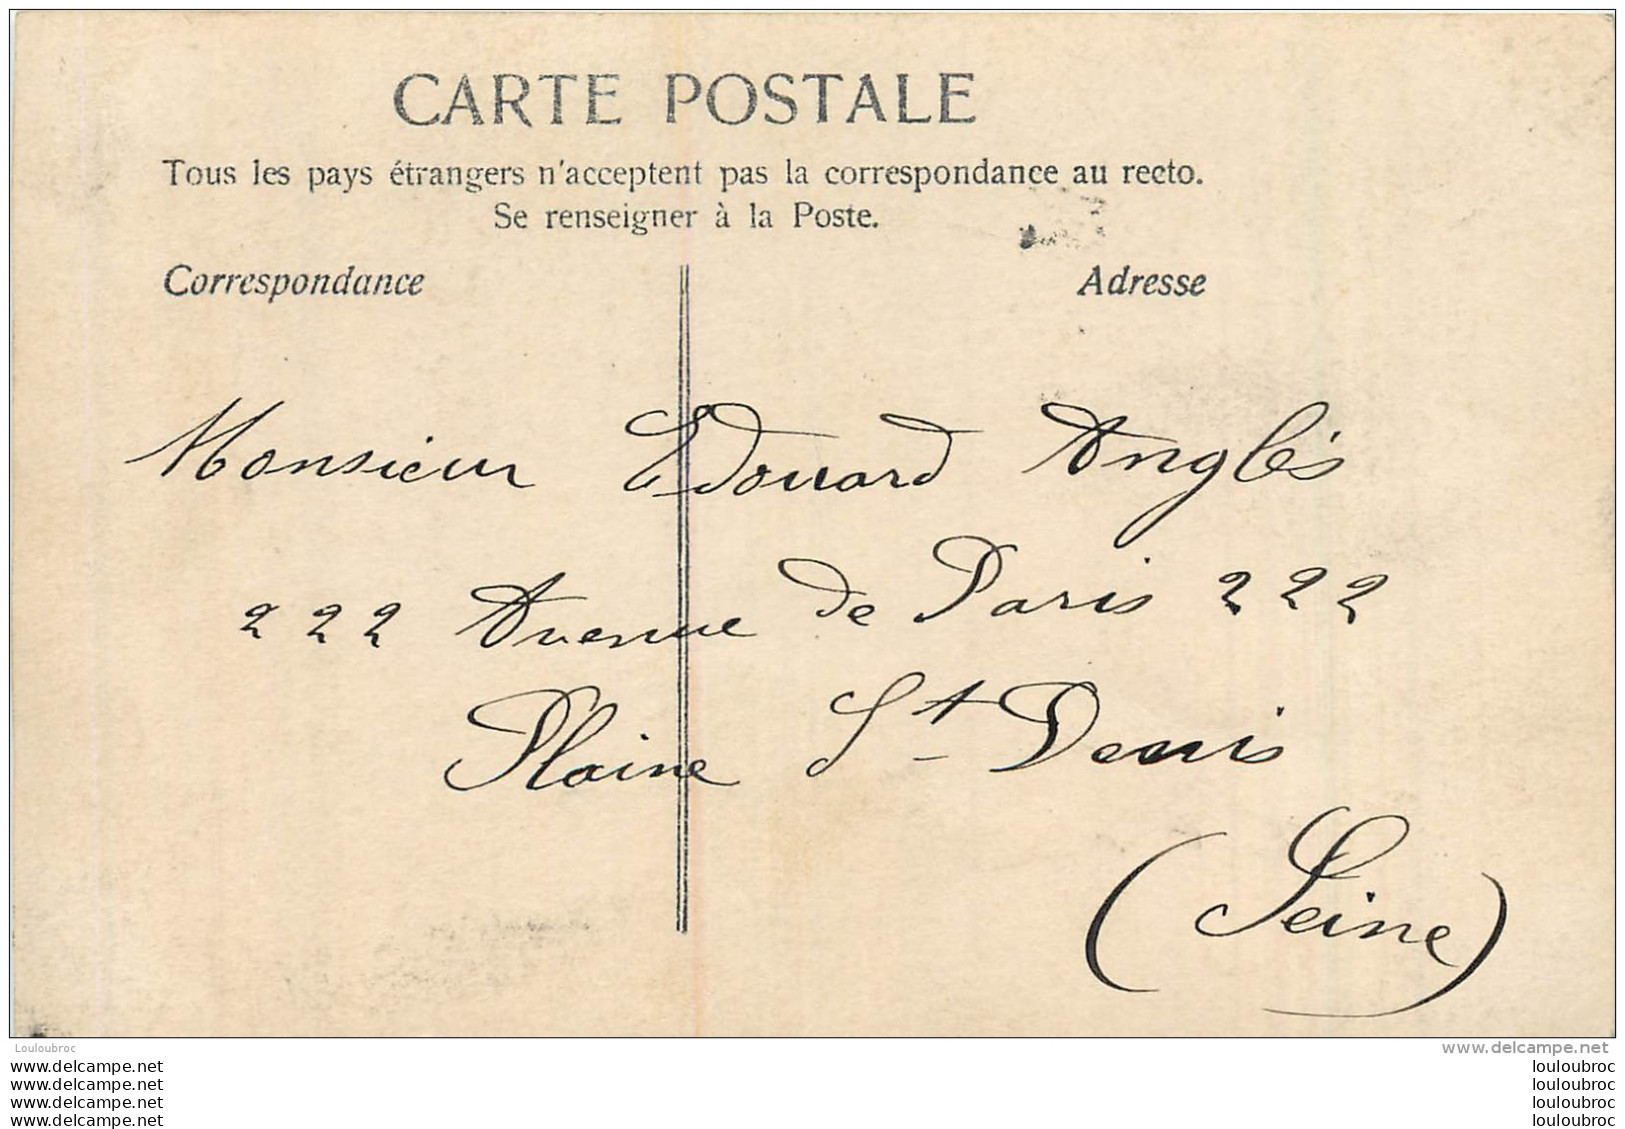 CARTE POSTALE
Tous les pays étrangers n'acceptent pas la correspondance au recto.
Se renseigner à la Poste.
Correspondance Adresse
Monsieur Edouard Anglès
222 Avenue de Paris 222
Plaine St Denis
(Seine)
Louloubroc www.delcampe.net
www.delcampe.net louloubroc
www.delcampe.net louloubroc
www.delcampe.net louloubroc
www.delcampe.net louloubroc